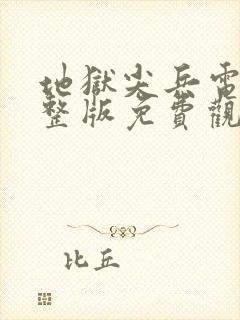 地獄尖兵電
整版免費觀
比丘